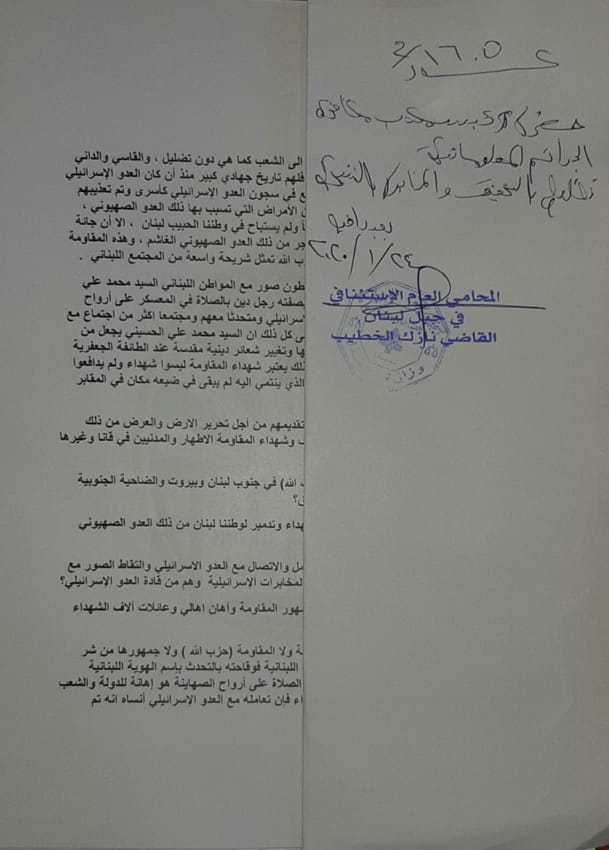 ٢/١٦٠٥
جانب
حضرة رئيس مكتب مكافحة
الجرائم المعلوماتية
للتفضل بالتحقيق والمخابرة بالنتيجة
بعبدا في
٢٠٢٠/١/٢٤
المحامي العام الإستئنافي
في جبل لبنان
القاضي نازك الخطيب
وزارة
الى الشعب كما هي دون تضليل ، والقاسي والداني
فلهم تاريخ جهادي كبير منذ أن كان العدو الإسرائيلي
ع في سجون العدو الإسرائيلي كأسرى وتم تعذيبهم
ن الأمراض التي تسبب بها ذلك العدو الصهيوني ،
اً ولم يستباح في وطننا الحبيب لبنان ، الا أن جائة
جر من ذلك العدو الصهيوني الغاشم ، وهذه المقاومة
ب الله تمثل شريحة واسعة من المجتمع اللبناني .
طون صور مع المواطن اللبناني السيد محمد علي
صفته رجل دين بالصلاة في المعسكر على أرواح
لإسرائيلي ومتحدثا معهم ومجتمعا اكثر من اجتماع مع
ى كل ذلك ان السيد محمد علي الحسيني يجعل من
ها وتغيير شعائر دينية مقدسة عند الطائفة الجعفرية
لك يعتبر شهداء المقاومة ليسوا شهداء ولم يدافعوا
الذي ينتمي اليه لم يبقى في ضيعه مكان في المقابر
تقديمهم من أجل تحرير الارض والعرض من ذلك
ب وشهداء المقاومة الاطهار والمدنيين في قانا وغيرها
ب الله) في جنوب لبنان وبيروت والضاحية الجنوبية
ى؟
هداء وتدمير لوطننا لبنان من ذلك العدو الصهيوني
مل والاتصال مع العدو الاسرائيلي والتقاط الصور مع
لمخابرات الإسرائيلية وهم من قادة العدو الإسرائيلي؟
هور المقاومة وأهان اهالي وعائلات آلاف الشهداء
ة ولا المقاومة (حزب الله ) ولا جمهورها من شر
اللبنانية فوقاحته بالتحدث بإسم الهوية اللبنانية
الصلاة على أرواح الصهاينة هو إهانة للدولة والشعب
اء فإن تعامله مع العدو الإسرائيلي أنساه انه تم